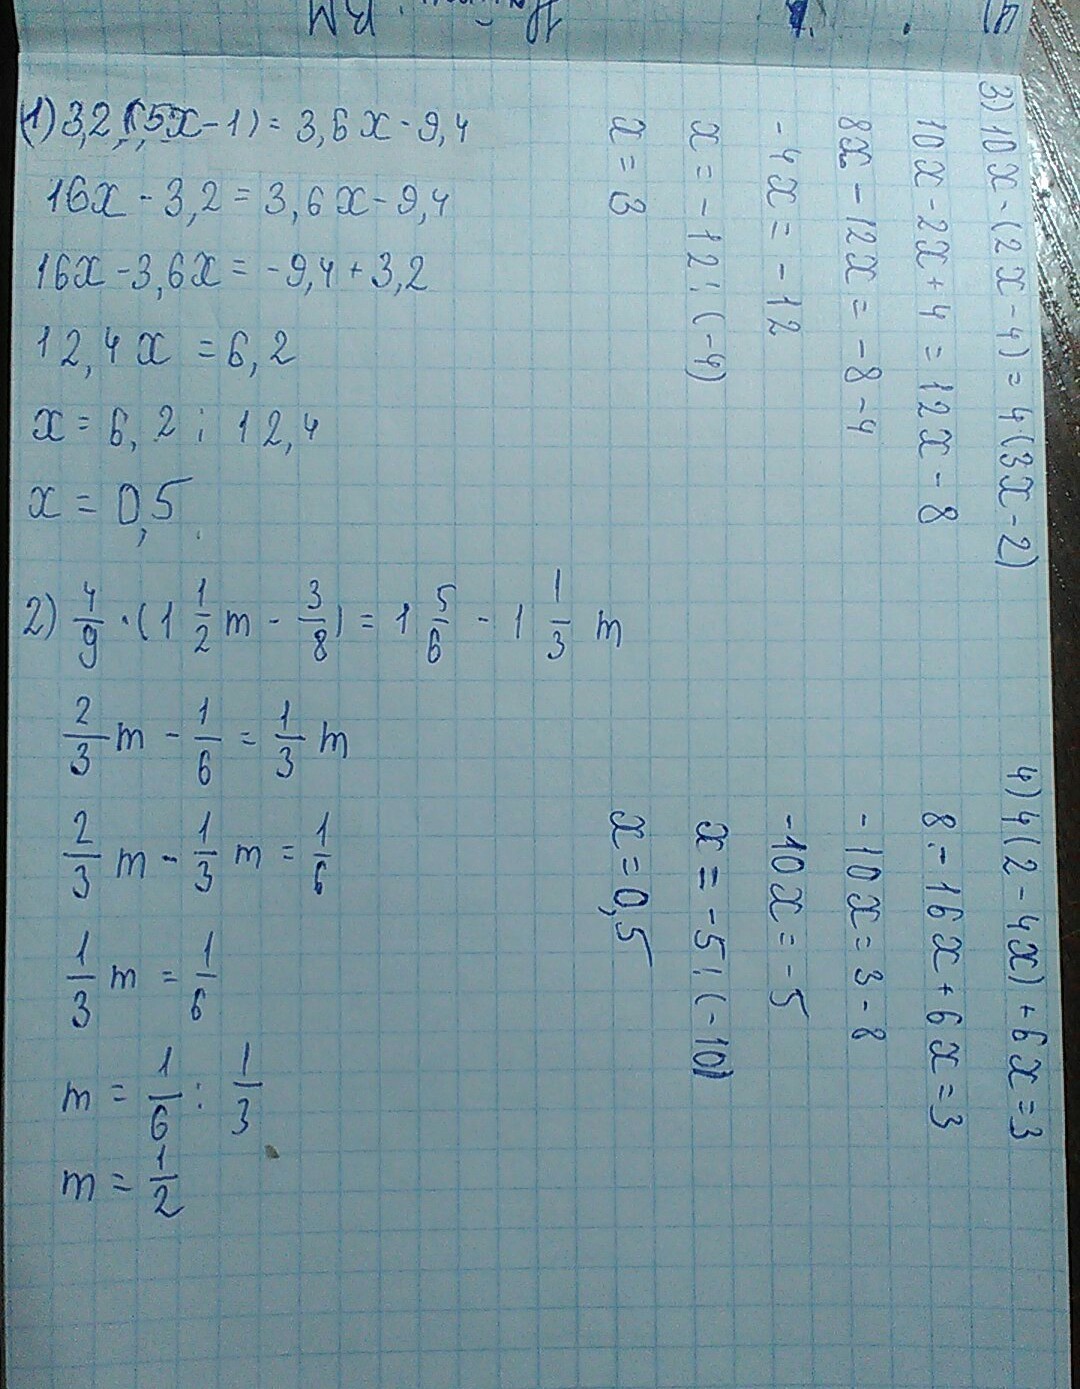 1) 3,2 · (5x - 1) = 3,6x - 9,4
16x - 3,2 = 3,6x - 9,4
16x - 3,6x = -9,4 + 3,2
12,4x = 6,2
x = 6,2 : 12,4
x = 0,5
2) 4/9 · (1 1/2 m - 3/8) = 1 5/6 - 1 1/3 m
2/3 m - 1/6 = 1/3 m
2/3 m - 1/3 m = 1/6
1/3 m = 1/6
m = 1/6 : 1/3
m = 1/2
3) 10x - (2x - 4) = 4 (3x - 2)
10x - 2x + 4 = 12x - 8
8x - 12x = -8 - 4
-4x = -12
x = -12 : (-4)
x = 3
4) 4 (2 - 4x) + 6x = 3
8 - 16x + 6x = 3
-10x = 3 - 8
-10x = -5
x = -5 : (-10)
x = 0,5